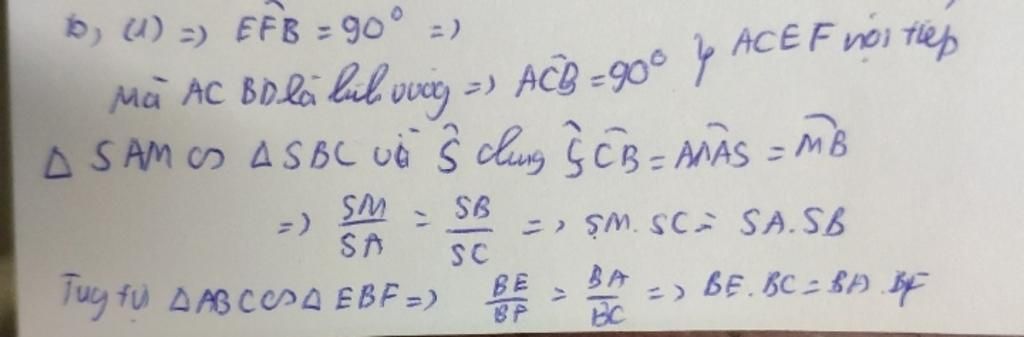 b, (1) => EF̂B = 90° =>
Mà ACBD là hình vuông => AĈB = 90° } ACEF nội tiếp
Δ SAM ∽ Δ SBC vì Ŝ chung ŜCB = AMAS = MB
=> SM/SA = SB/SC => SM.SC = SA.SB
Tug tự Δ ABC ∽ Δ EBF => BE/BF = BA/BC => BE.BC = BA.BF